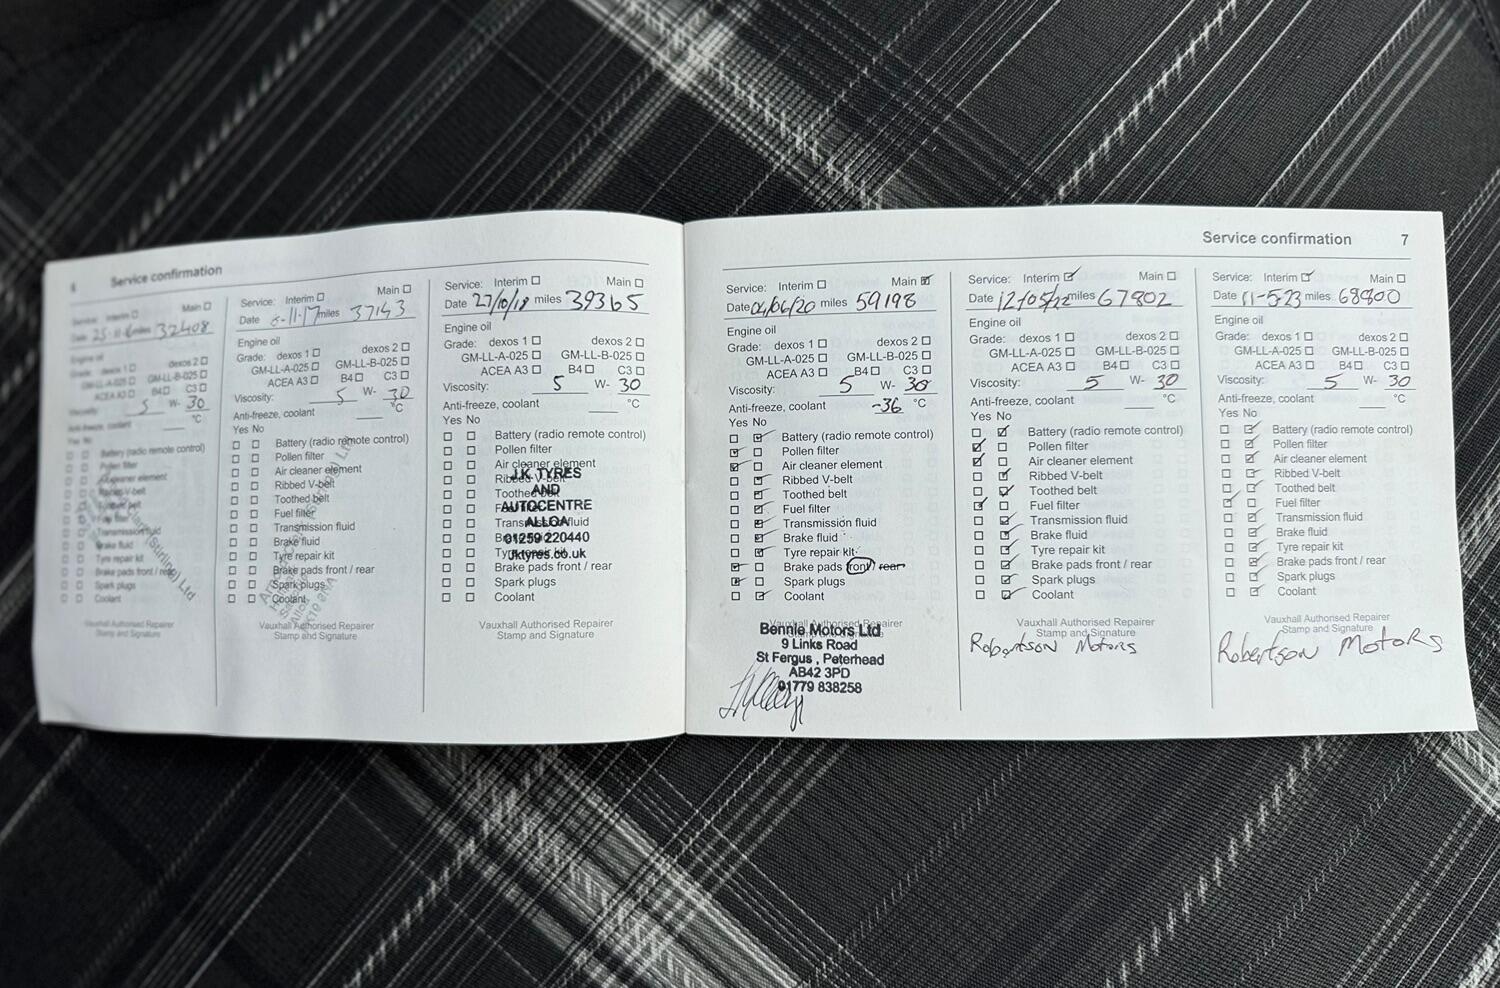 6 Service confirmation
Service: Interim Main
Date miles 32408
Engine oil
Grade: dexos 1 dexos 2
GM-LL-A-025 GM-LL-B-025
ACEA A3 B4 C3
Viscosity: 5 W- 30
Anti-freeze, coolant °C
Yes No
Battery (radio remote control)
Pollen filter
Air cleaner element
Ribbed V-belt
Toothed belt
Fuel filter
Transmission fluid
Brake fluid
Tyre repair kit
Brake pads front / rear
Spark plugs
Coolant
(Stirling) Ltd
Vauxhall Authorised Repairer
Stamp and Signature
Service: Interim Main
Date miles 37143
Engine oil
Grade: dexos 1 dexos 2
GM-LL-A-025 GM-LL-B-025
ACEA A3 B4 C3
Viscosity: 5 W- 30
Anti-freeze, coolant °C
Yes No
Battery (radio remote control)
Pollen filter
Air cleaner element
Ribbed V-belt
Toothed belt
Fuel filter
Transmission fluid
Brake fluid
Tyre repair kit
Brake pads front / rear
Spark plugs
Coolant
Vauxhall Authorised Repairer
Stamp and Signature
Service: Interim Main
Date 27/10/18 miles 39365
Engine oil
Grade: dexos 1 dexos 2
GM-LL-A-025 GM-LL-B-025
ACEA A3 B4 C3
Viscosity: 5 W- 30
Anti-freeze, coolant °C
Yes No
Battery (radio remote control)
Pollen filter
Air cleaner element
Ribbed V-belt
Toothed belt
Fuel filter
Transmission fluid
Brake fluid
Tyre repair kit
Brake pads front / rear
Spark plugs
Coolant
J.K. TYRES
AND
AUTOCENTRE
ALLOA
01259 220440
jktyres.co.uk
Vauxhall Authorised Repairer
Stamp and Signature
Service confirmation 7
Service: Interim Main
Date 04/06/20 miles 59198
Engine oil
Grade: dexos 1 dexos 2
GM-LL-A-025 GM-LL-B-025
ACEA A3 B4 C3
Viscosity: 5 W- 30
Anti-freeze, coolant -36 °C
Yes No
Battery (radio remote control)
Pollen filter
Air cleaner element
Ribbed V-belt
Toothed belt
Fuel filter
Transmission fluid
Brake fluid
Tyre repair kit
Brake pads front / rear
Spark plugs
Coolant
Vauxhall Authorised Repairer
Stamp and Signature
Bennie Motors Ltd
9 Links Road
St Fergus , Peterhead
AB42 3PD
01779 838258
Service: Interim Main
Date 12/05/22 miles 67802
Engine oil
Grade: dexos 1 dexos 2
GM-LL-A-025 GM-LL-B-025
ACEA A3 B4 C3
Viscosity: 5 W- 30
Anti-freeze, coolant °C
Yes No
Battery (radio remote control)
Pollen filter
Air cleaner element
Ribbed V-belt
Toothed belt
Fuel filter
Transmission fluid
Brake fluid
Tyre repair kit
Brake pads front / rear
Spark plugs
Coolant
Vauxhall Authorised Repairer
Stamp and Signature
Robertson Motors
Service: Interim Main
Date 11-5-23 miles 68800
Engine oil
Grade: dexos 1 dexos 2
GM-LL-A-025 GM-LL-B-025
ACEA A3 B4 C3
Viscosity: 5 W- 30
Anti-freeze, coolant °C
Yes No
Battery (radio remote control)
Pollen filter
Air cleaner element
Ribbed V-belt
Toothed belt
Fuel filter
Transmission fluid
Brake fluid
Tyre repair kit
Brake pads front / rear
Spark plugs
Coolant
Vauxhall Authorised Repairer
Stamp and Signature
Robertson Motors